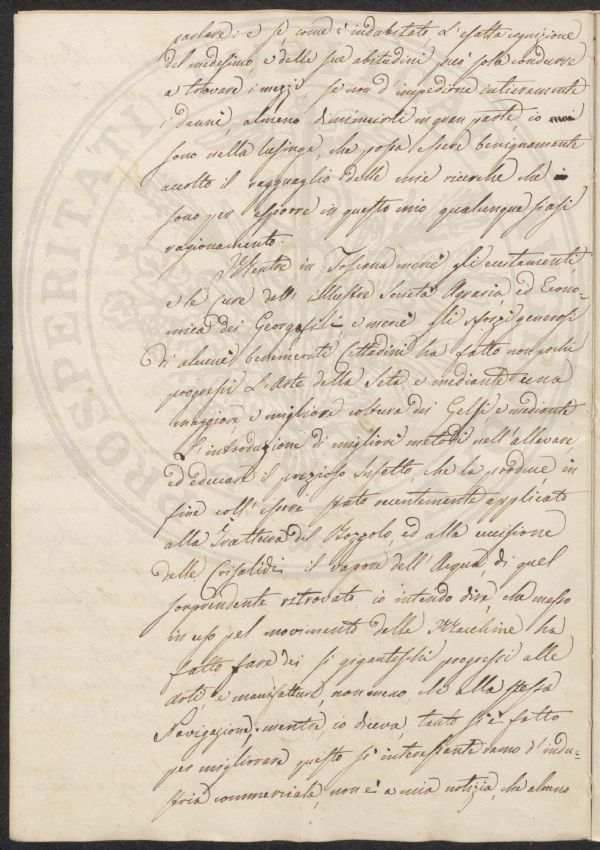 parlare: e se, come è indubitato, l'esatta cognizione
del medesimo, e delle sue abitudini può sola condurre
a trovare i mezzi se non d'impedirne intieramente
i danni, almeno diminuirli in gran parte, io
sono nella lusinga, che possa essere benignamente
accolto il ragguaglio delle mie ricerche che
sono per esporre in questo mio qualunque siasi
ragionamento.
Mentre in Toscana mercè gli eccitamenti,
e le cure dell'illustre Società Agraria ed Econo-
mica dei Georgofili e mercè gli sforzi generosi
di alcuni benemeriti Cittadini ha fatto non pochi
progressi l'Arte della Seta e mediante una
maggiore e migliore coltura dei Gelsi e mediante
l'introduzione di migliori metodi nell'allevare
ed educare il prezioso insetto, che la produce, in
fine coll'essere stato recentemente applicato
alla Trattura del Bozzolo, ed alla uccisione
delle Crisalidi il vapore dell'Acqua, di quel
sorprendente ritrovato, io intendo dire, che messo
in uso pel movimento delle Macchine ha
fatto fare dei sì giganteschi progressi alle
Arti, e manifatture, non meno che alla stessa
Navigazione: mentre io diceva, tanto si è fatto
per migliorare questo sì interessante ramo d'indu-
stria commerciale, non è a mia notizia, che alcuno
PROSPERITATI